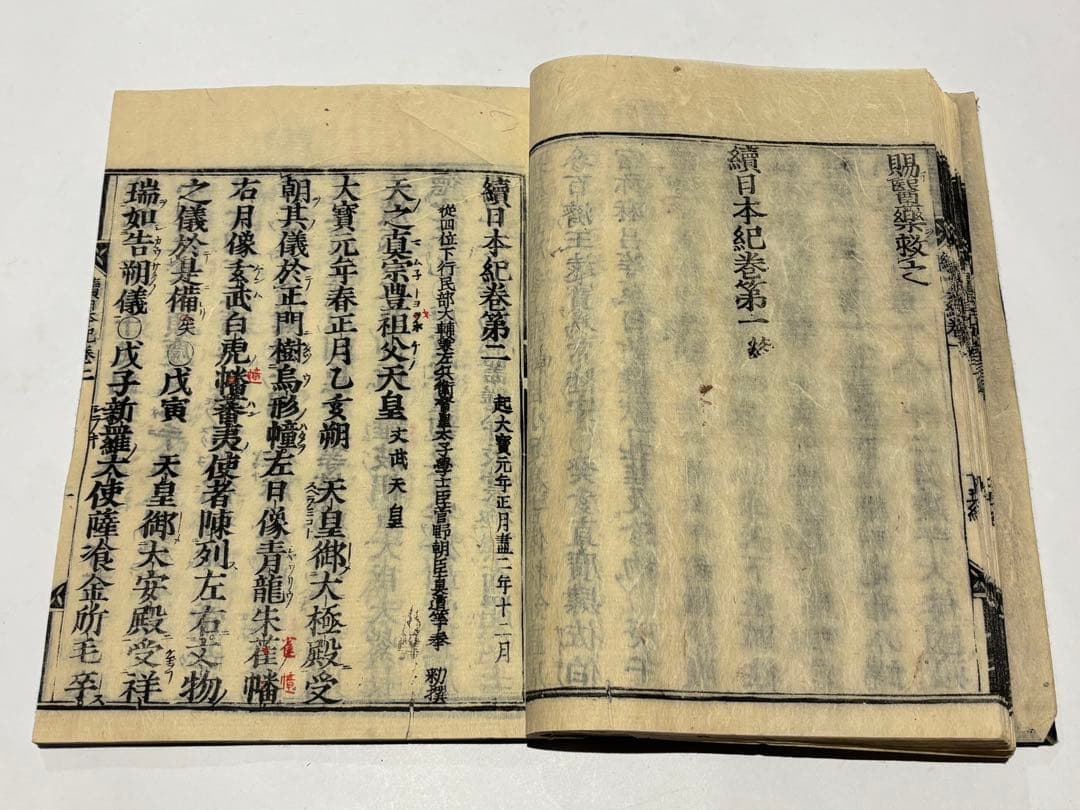 賜醫藥救之
續日本紀巻第一
續日本紀巻第二 起大寶元年正月盡二年十二月
從四位下行民部大輔兼左兵衛督皇太子學士臣菅野朝臣眞道等奉 勅撰
天之眞宗豊祖父天皇 文武天皇
大寶元年春正月乙亥朔 天皇御大極殿受
朝其儀於正門樹烏形幢左日像青龍朱雀幡
右月像玄武白虎幡蕃夷使者陳列左右文物
之儀於是備矣 戊寅 天皇御大安殿受祥
瑞如告朔儀 十 戊子新羅大使薩飡金所毛卒
續日本紀巻二